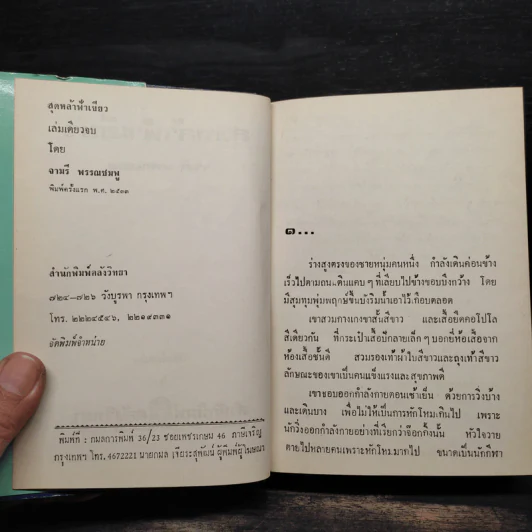 สุดหล้าฟ้าเขียว
เล่มเดียวจบ
โดย
จามรี พรรณชมพู
พิมพ์ครั้งแรก พ.ศ. ๒๕๓๓
สำนักพิมพ์คลังวิทยา
๗๒๔-๗๒๖ วังบูรพา กรุงเทพฯ
โทร. ๒๒๒๔๕๔๖, ๒๒๑๙๓๓๑
จัดพิมพ์จำหน่าย
พิมพ์ที่ : กมลการพิมพ์ 36/23 ซอยเพชรเกษม 46 ภาษีเจริญ
กรุงเทพฯ โทร. 4672221 นายกมล เจียระสุพัฒน์ ผู้พิมพ์ผู้โฆษณา
๑...
ร่างสูงตรงของชายหนุ่มคนหนึ่ง กำลังเดินค่อนข้าง
เร็วไปตามถนนดินแคบๆ ที่เลียบไปข้างขอบบึงกว้าง โดย
มีสุมทุมพุ่มพฤกษ์ขึ้นบังริมน้ำเอาไว้เกือบตลอด
เขาสวมกางเกงขาสั้นสีขาว และเสื้อยืดคอโปโล
สีเดียวกัน ที่กระเป๋าเสื้อมีสลากเล็กๆ บอกยี่ห้อเสื้อจาก
ห้องเสื้อชั้นดี สวมรองเท้าผ้าใบสีขาวและถุงเท้าสีขาว
ลักษณะของเขาเป็นคนแข็งแรงและสุขภาพดี
เขาชอบออกกำลังกายตอนเช้าเย็น ด้วยการวิ่งบ้าง
และเดินบ้าง เพื่อไม่ให้เป็นการหักโหมเกินไป เพราะ
นักวิ่งออกกำลังกายอย่างที่เรียกว่าจ๊อกกิ้งนั้น หัวใจวาย
ตายไปหลายคนเพราะหักโหมมากไป ขนาดเป็นนักกีฬา